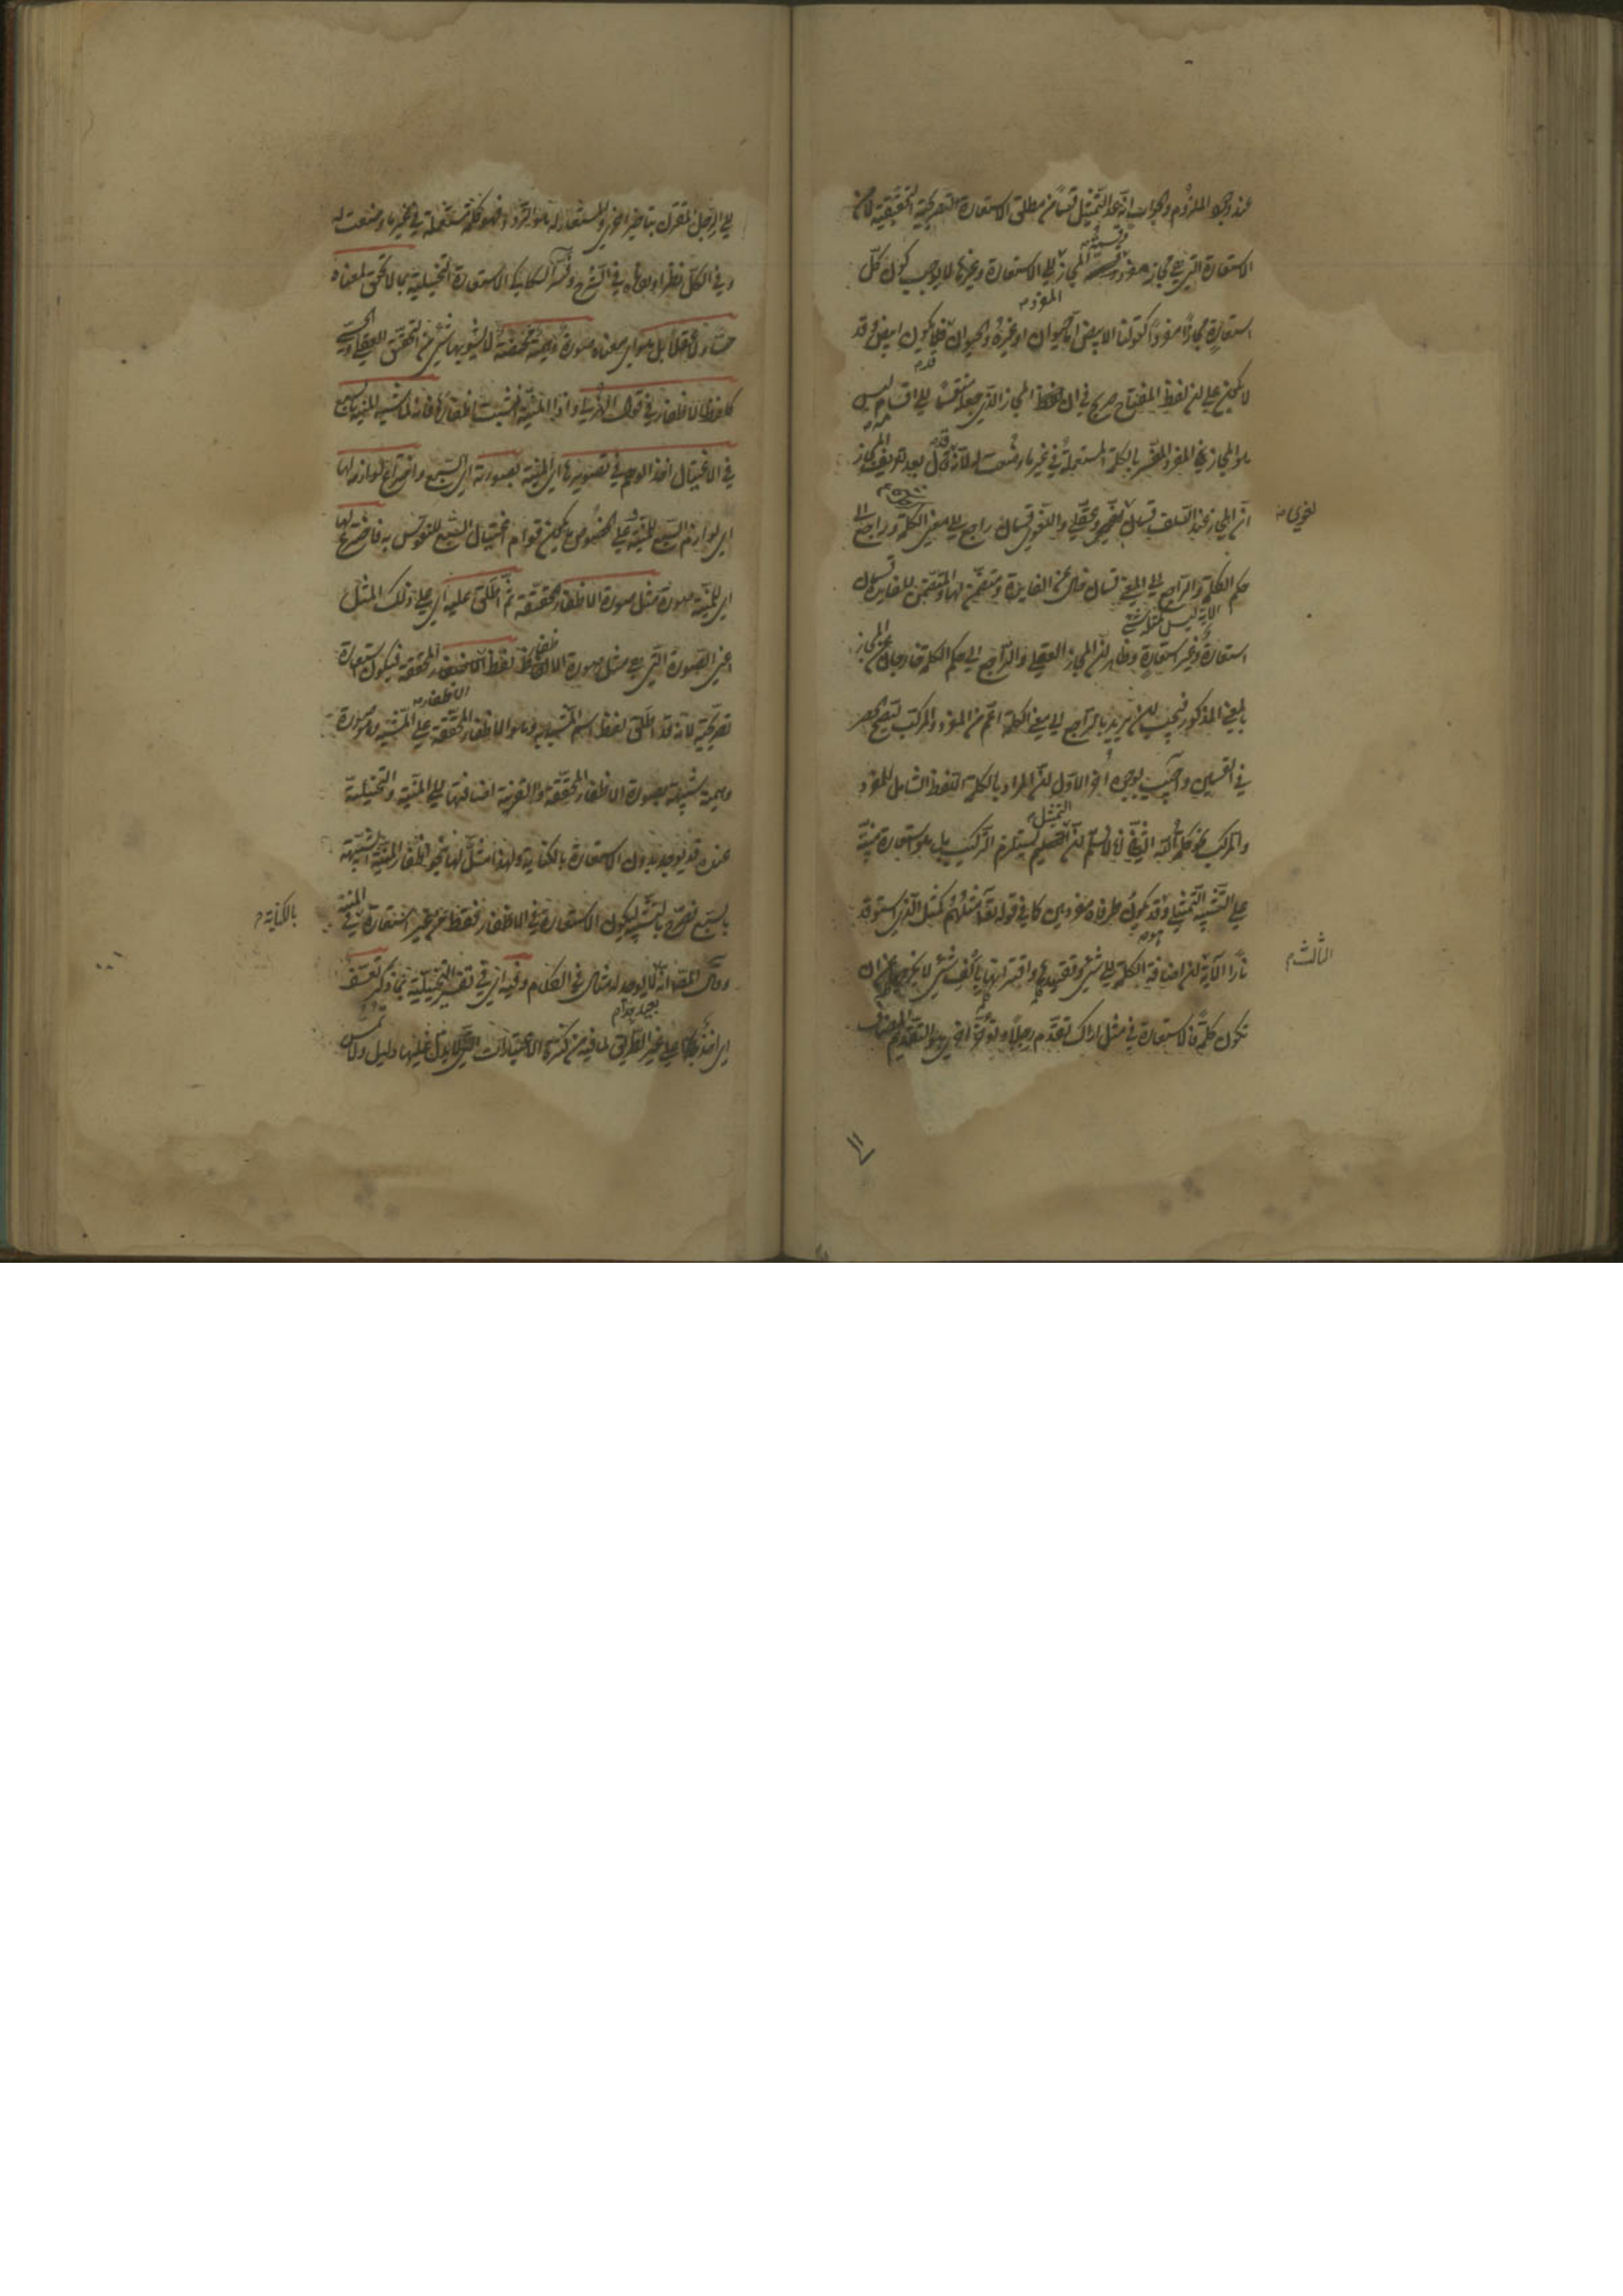 عند وجود الملزوم والجواب انه عد التمثيل قسما من مطلق الاستعارة التصريحية التحقيقية لا من
الاستعارة التي هي مجاز مفرد وقسمة المجاز الى الاستعارة وغيرها لا يوجب كون كل
استعارة مجازا مفردا كقولنا الابيض اما حيوان او غيره والحيوان قد يكون ابيض وقد
لا يكون على ان لفظ المفتاح صريح في ان المجاز الذي جعله منقسما الى اقسام ليس
هو المجاز في المفرد المفسر بالكلمة المستعملة في غير ما وضعت له لانه قال بعد تعريف المجاز
ان المجاز عند السلف قسمان لغوي وعقلي واللغوي قسمان راجع الى معنى الكلمة وراجع الى
لغوي
حكم الكلمة والراجع الى المعنى قسمان خال عن الفايدة ومتضمن لها والمتضمن للفايدة قسمان
استعارة وغير استعارة وظاهر ان المجاز العقلي والراجع الى حكم الكلمة خارجان عن المجاز
بالمعنى المذكور فيجب ان يريد بالراجع الى معنى الكلمة اعم من المفرد والمركب ليصح الحصر
في القسمين واجيب بوجوه اخر الاول ان المراد بالكلمة اللفظ الشامل للمفرد
والمركب نحو كلمة الله الثاني انا لا نسلم ان التمثيل يستلزم التركيب بل هو استعارة مبنية
على التشبيه التمثيلي وقد يكون طرفاه مفردين كما في قوله تعالى مثلهم كمثل الذي استوقد
نارا الآية الثالث ان اضافة الكلمة الى شيء وتقييدها واقترانها بالف شيء لا يخرجها عن ان
تكون كلمة فالاستعارة في مثل اراك تقدم رجلا وتؤخر اخرى هو التقديم المضاف
الى الرجل المقترن بتاخير اخرى والمستعار له هو التردد فهو كلمة مستعملة في غير ما وضعت له
وفي الكل نظر اوردناه في الشرح وفسر السكاكي الاستعارة التخييلية بما لا تحقق لمعناه
حسا ولا عقلا بل هو اي معناه صورة وهمية محضة لا يشوبها شيء من التحقق العقلي والحسي
كلفظ الاظفار في قول الهذلي واذا المنية انشبت اظفارها فانه لما شبه المنية بالسبع
في الاغتيال اخذ الوهم في تصويرها اي المنية بصورته اي السبع واختراع لوازمه لها
اي لوازم السبع للمنية وعلى الخصوص ما يكون قوام اغتيال السبع للنفوس به فاخترع لها
اي للمنية صورة مثل صورة الاظفار المحققة ثم اطلق عليه اي على ذلك المثل
اعني الصورة التي هي مثل صورة الاظفار لفظ الاظفار المحققة فيكون استعارة
تصريحية لانه قد اطلق لفظ اسم المشبه به وهو الاظفار المحققة على المشبه وهو صورة
وهمية شبيهة بصورة الاظفار المحققة والقرينة اضافتها الى المنية والتخييلية
عنده قد يوجد بدون الاستعارة بالكناية ولهذا مثل لها بنحو اظفار المنية الشبيهة
بالسبع فصرح بالتشبيه ليكون الاستعارة في الاظفار فقط من غير استعارة في المنية
بالكناية
وقال المصنف انه لا يوجد له مثال في الكلام وفيه اي في تفسير التخييلية بما ذكر تعسف
اي اخذ على غير الطريق لما فيه من كثرة الاعتبارات التي لا يدل عليها دليل ولا تمس